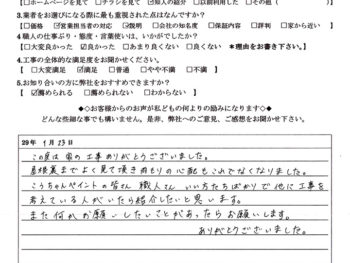 □ホームページを見て □チラシを見て ☑知人の紹介 □以前利用した □その他（
3.業者をお選びになる際に最も重視された点はなんですか？
□価格 ☑営業担当者の対応 ☑説明 □会社の知名度 □保証内容 □評判 □家から近い
4.職人の仕事ぶり・態度・言葉使いは、いかがでしたか？
□大変良かった ☑良かった □あまり良くない □良くない *理由をお書き下さい。
4.工事の全体的な満足度をお聞かせください。
□大変満足 ☑満足 □普通 □やや不満 □不満
5.お知り合いの方に弊社をおすすめできますか？
☑薦められる □薦められない □わからない
◆◇お客様からのお声が私どもの何よりの励みになります◇◆
どんな些細な事でも構いません。是非、弊社へのご意見、ご感想をお聞かせ下さい。
29年 1月 23日
この度は 家の工事ありがとうございました。
屋根裏までよく見て頂き雨もりの心配もこれでなくなりました。
こうちゃんペイントの皆さん 職人さん いい方たちばかりで他に工事を
考えている人がいたら紹介したいと思います。
また何かお願いしたいことがあったらお願いします。
ありがとうございました。